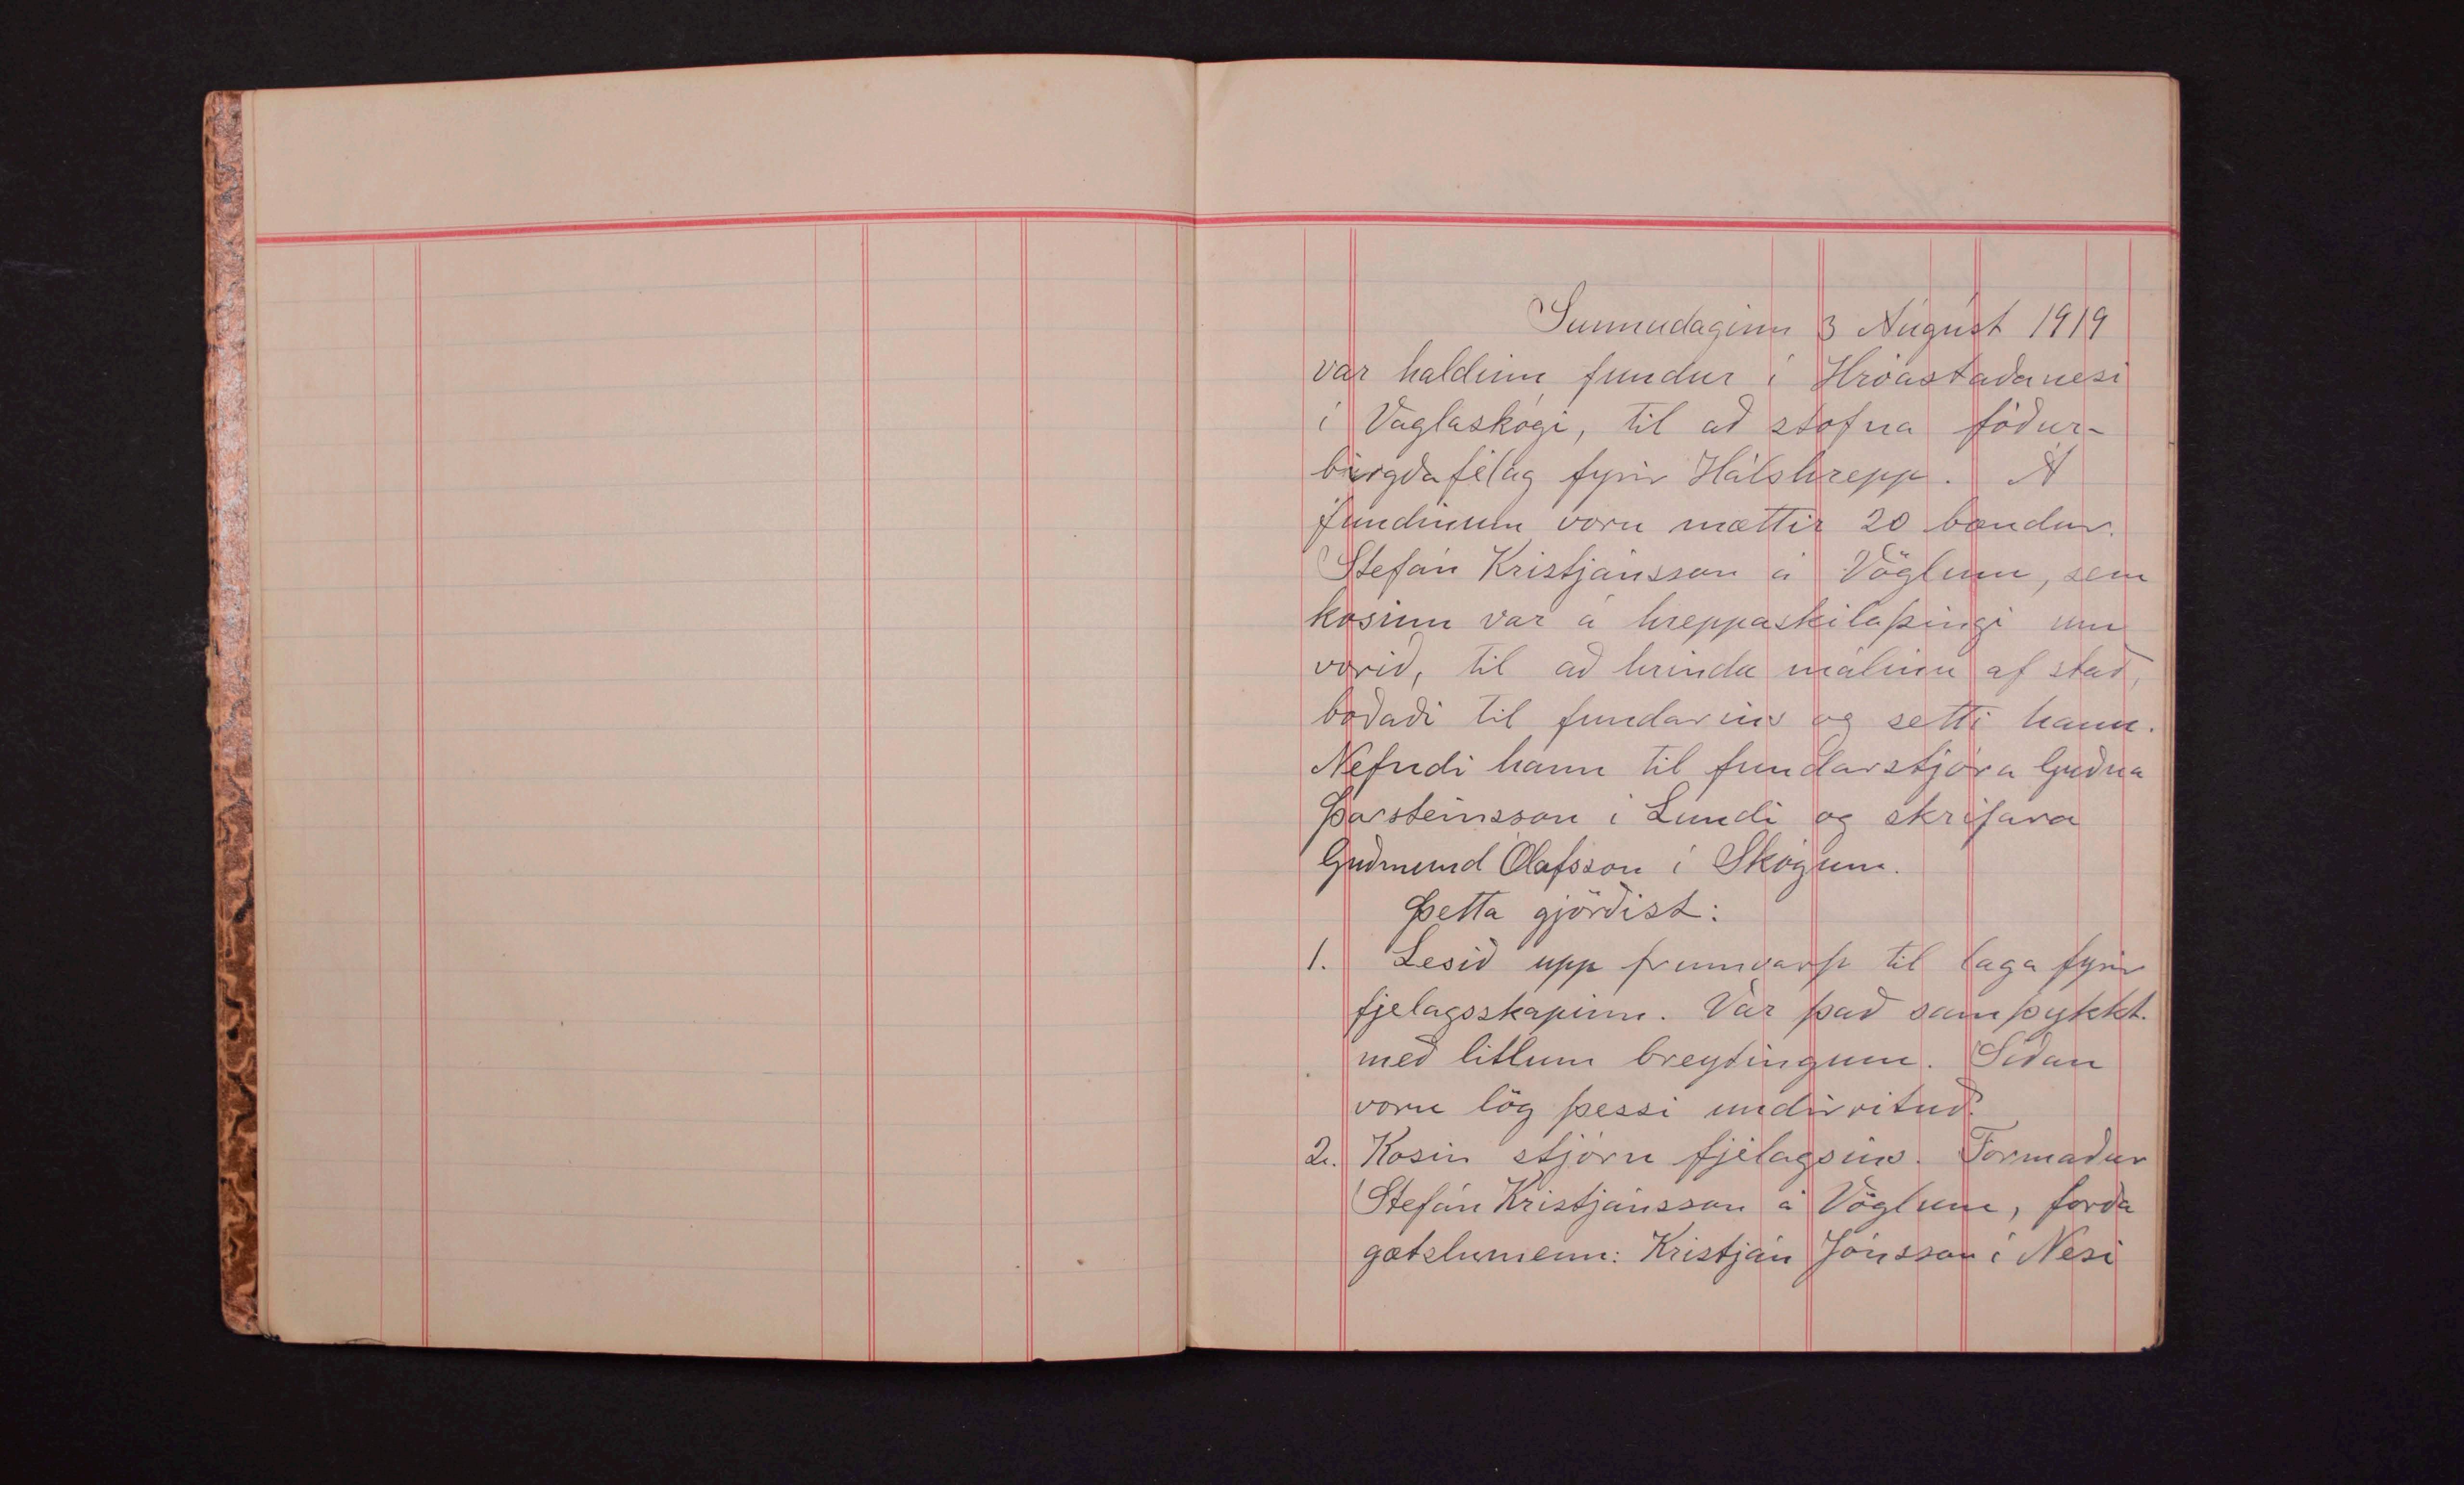 Sunnudaginn 3 August 1919
var haldinn fundur í Hróastaðanesi
í Vaglaskógi, til að stofna fóður-
birgðafélag fyrir Hálshrepp. Á
fundinum voru mættir 20 bændur.
Stefán Kristjánsson á Vöglum, sem
kosinn var á hreppaskilaþingi um
vorið, til að hrinda málinu af stað,
boðaði til fundarins og setti hann.
Nefndi hann til fundarstjóra Guðna
Þorsteinsson í Lundi og skrifara
Guðmund Ólafsson í Skógum.
Þetta gjörðist:
1. Lesið upp frumvarp til laga fyrir
fjelagsskapinn. Var það samþykkt.
með litlum breytingum. Síðan
voru lög þessi undirrituð.
2. Kosin stjórn fjelagsins. Formaður
Stefán Kristjánsson á Vöglum, forða
gætslumenn: Kristján Jónsson í Nesi